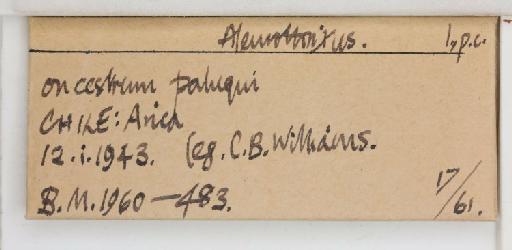 Aleurothrixus. 1, p.c.
on cestrum paluqui
CHILE: Arica
12.i.1943. (leg. C.B. Williams.
B.M. 1960-483. 17/61.